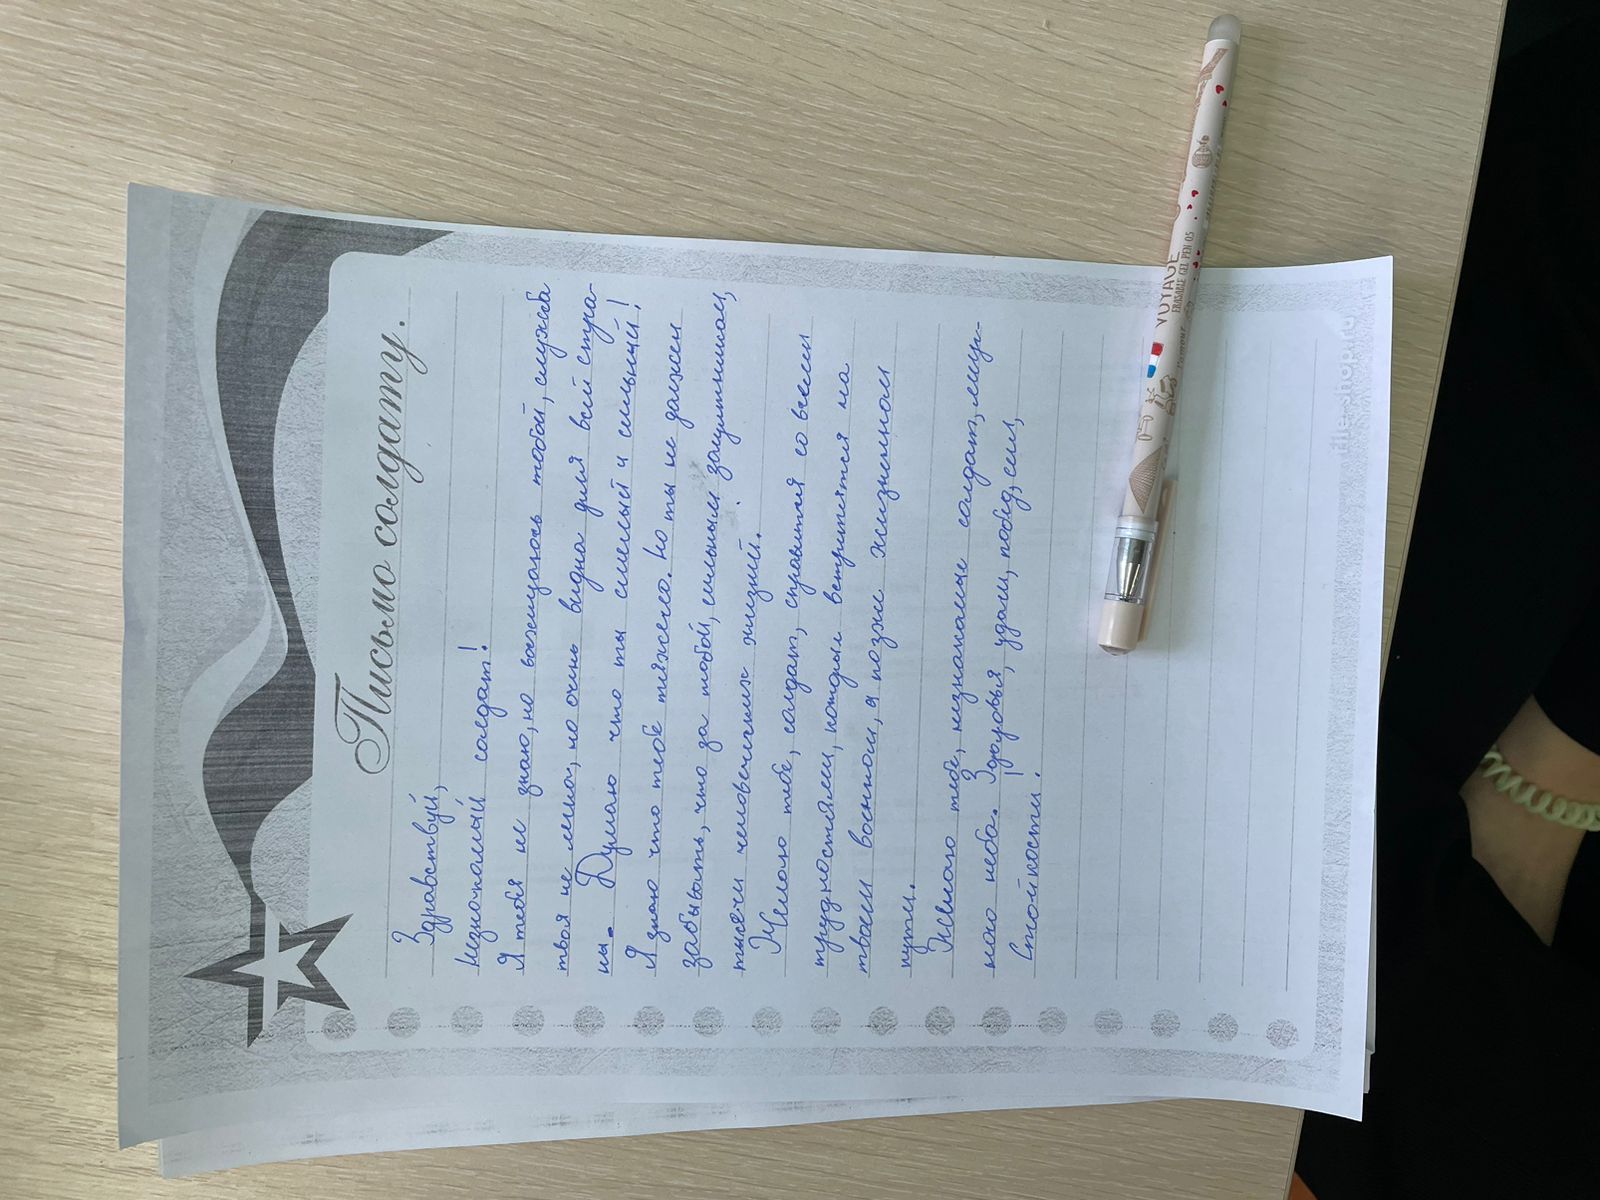 Письмо солдату.
Здравствуй,
незнакомый солдат!
Я тебя не знаю, но восхищаюсь тобой, служба
твоя не легка, но очень видна для всей стра-
ны. Думаю что ты смелый и сильный!
Я знаю что тебе тяжело. Но ты не должен
забывать, что за тобой, сильным защитником,
тысячи человеческих жизней.
Желаю тебе, солдат, справится со всеми
трудностями, которые встретятся на
твоем военном, а позже жизненном
пути.
Желаю тебе, незнакомые солдат, мир-
ного неба. Здоровья, удачи, побед, сил,
Стойкости!
file-shop.ru
VOYAGE
ERASABLE GEL PEN 0.5